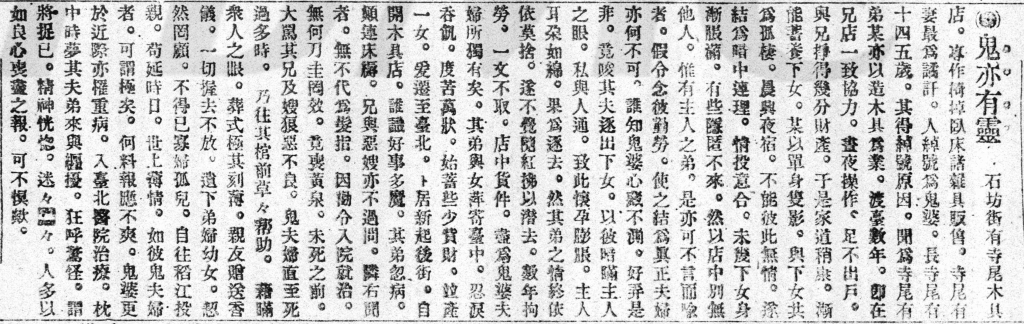 ◎鬼亦有靈　石坊街有寺尾木具
店。專作椅掉臥床諸雜具販售。寺尾有
妻最為譎訐。人綽號為鬼婆。長寺尾有
十四五歲。其得綽號原因。聞為寺尾有
弟某亦以造木具為業。渡臺數年。即在
兄店一致協力。晝夜操作。足不出戶。
與兄掙得幾分財產。于是家道稍康。漸
能蓄養下女。某以單身隻影。與下女共
為孤棲。晨興夜宿。不能彼此無情。遂
結為暗中連理。情投意合。未幾下女身
漸脹滿。有些隱匿不來。然以店中別無
他人。惟有主人之弟。是亦可不言而喻
者。假令念彼勤勞。使之結為眞正夫婦
亦何不可。誰知鬼婆心竅不測。好弄是
非。竟唆其夫逐出下女。以彼暗瞞主人
之眼。私與人通。致此懷孕膨脹。主人
耳朵如綿。果為逐去。然其弟之情終依
依莫捨。遂不覺隨紅拂以潛去。數年拘
勞。一文不取。店中貨件。盡為鬼婆夫
婦所獨有矣。其弟與女萍寄臺中。忍淚
吞飢。度苦萬狀。始蓄些少貲財。竝產
一女。爰遷至臺北。卜居新起後街。自
開木具店。誰識好事多魔。其弟忽病。
顛連床褥。兄與惡嫂亦不過問。隣右聞
者。無不代為髮指。因勸令入院就治。
無何刀圭罔效。竟喪黃泉。未死之前。
大罵其兄及嫂狠惡不良。鬼夫婦直至死
過多時。乃往其棺前草々幇助。藉瞞
衆人之眼。葬式極其刻薄。親友贈送香
儀。一切握去不放。遺下弟婦幼女。恝
然罔顧。不得已寡婦孤兒。自往稻江投
親。苟延時日。世上薄情。如彼鬼夫婦
者。可謂極矣。何料報應不爽。鬼婆更
於近際亦權重病。入臺北醫院治療。枕
中時夢其夫弟來與纏擾。狂呼驚怪。謂
將捉已。精神恍惚。迷々々。人多以
如良心喪盡之報。可不惧歟。